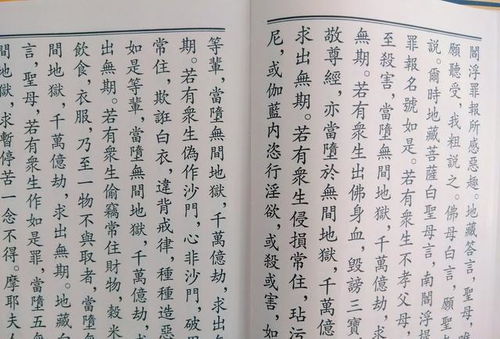 閻浮罪報所感惡趣。地藏答言,聖母,唯
願聽受,我粗說之。佛母白言,願聖
說。爾時地藏菩薩白聖母言,南閻浮提
罪報名號如是。若有衆生不孝父母,
至殺害,當墮無間地獄,千萬億劫,求
無期。若有衆生出佛身血,毀謗三寶
敬尊經,亦當墮於無間地獄,千萬億
求出無期。若有衆生侵損常住,玷污
尼,或伽藍內恣行淫欲,或殺或害,如
等輩,當墮無間地獄,千萬億劫,求出
期。若有衆生偽作沙門,心非沙門,破
常住,欺誑白衣,違背戒律,種種造惡
如是等輩,當墮無間地獄,千萬億劫,
出無期。若有衆生偷竊常住財物,穀米
飲食,衣服,乃至一物不與取者,當墮無
間地獄,千萬億劫,求出無期。地藏白
言,聖母,若有衆生作如是罪,當墮五無
間地獄,求暫停苦一念不得。摩耶夫人